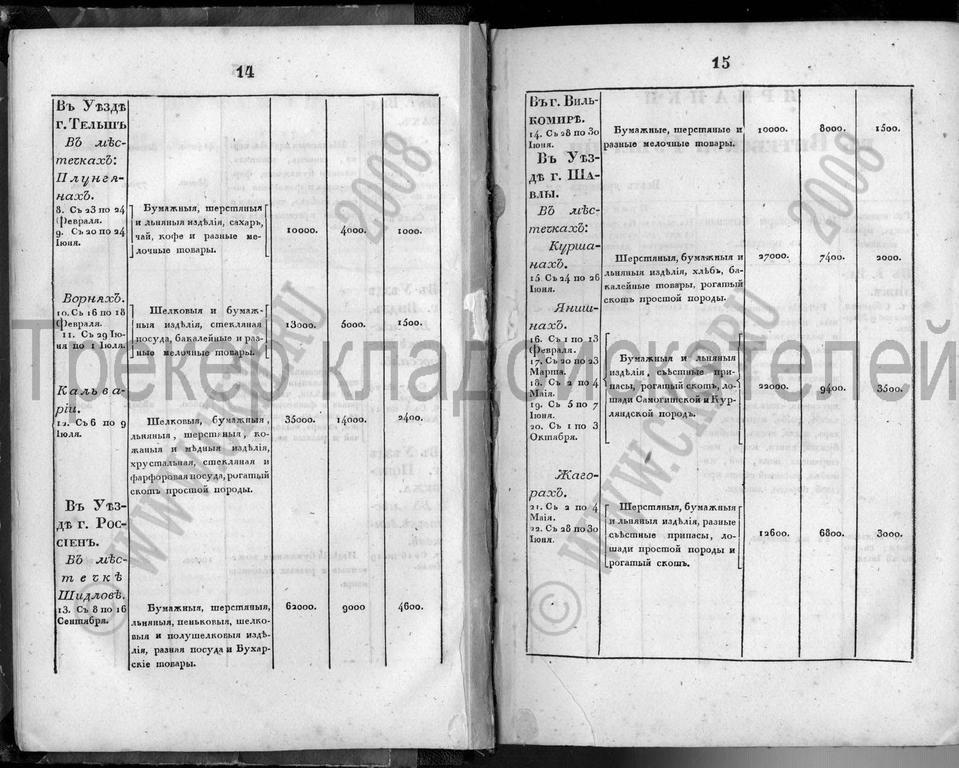 14
Въ Уѣздѣ
г. Тельшъ
Въ мѣс-
течкахъ:
Плунгя-
нахъ.
8. Съ 23 по 24
Февраля.
9. Съ 20 по 24
Іюня.
Бумажныя, шерстяныя
и льняныя издѣлія, сахаръ,
чай, кофе и разные ме-
лочные товары.
10000. 4000. 1000.
Ворняхъ.
10. Съ 16 по 18
Февраля.
11. Съ 29 Iю-
ня по 1 Iюля.
Шелковыя и бумаж-
ныя издѣлія, стекляная
посуда, бакалейные и раз-
ные мелочные товары.
13000. 5000. 1500.
Кальва-
ріи.
12. Съ 6 по 9
Iюля.
Шелковыя, бумажныя,
льняныя, шерстяныя, ко-
жаныя и мѣдныя издѣлія,
хрустальная, стекляная и
фарфоровая посуда, рогатый
скотъ простой породы.
35000. 14000. 2400.
Въ Уѣз-
дѣ г. Рос-
сіенъ.
Въ мѣс-
течкѣ
Шидловѣ.
13. Съ 8 по 16
Сентября.
Бумажныя, шерстяныя,
льняныя, пеньковыя, шелко-
выя и полушелковыя издѣ-
лія, разная посуда и Бухар-
скіе товары.
62000. 9000 4600.
15
Въ г. Виль-
комирѣ.
14. Съ 28 по 30
Iюня.
Бумажные, шерстяные и
разные мелочные товары.
10000. 8000. 1500.
Въ Уѣз-
дѣ г. Ша-
влы.
Въ мѣс-
течкахъ:
Курша-
нахъ.
15 Съ 24 по 26
Iюня.
Шерстяныя, бумажныя и
льняныя издѣлія, хлѣбъ, ба-
калейные товары, рогатый
скотъ простой породы.
27000. 7400. 2000.
Яниш-
нахъ.
16. Съ 1 по 13
Февраля.
17. Съ 20 по 23
Марта.
18. Съ 2 по 4
Маія.
19. Съ 5 по 7
Iюня.
20. Съ 1 по 3
Октября.
Бумажныя и льняныя
издѣлія, съѣстные при-
пасы, рогатый скотъ, ло-
шади Самогитской и Кур-
ляндской породъ.
22000. 9400. 3500.
Жаго-
рахъ.
21. Съ 2 по 4
Маія.
22. Съ 28 по 30
Iюня.
Шерстяныя, бумажныя
и льняныя издѣлія, разные
съѣстные припасы, ло-
шади простой породы и
рогатый скотъ.
12600. 6800. 3000.
Трекер кладоискателей
© WWW.CKB.RU 2008
© WWW.CKB.RU 2008